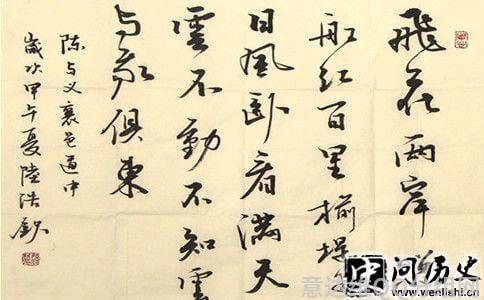 飛花兩岸
船红百里榆堤
日風卧看滿天
雲不動不知雲
与我俱東
陈与义襄邑道中
歲次甲午夏陸浩
问历史
www.wenlishi.cn